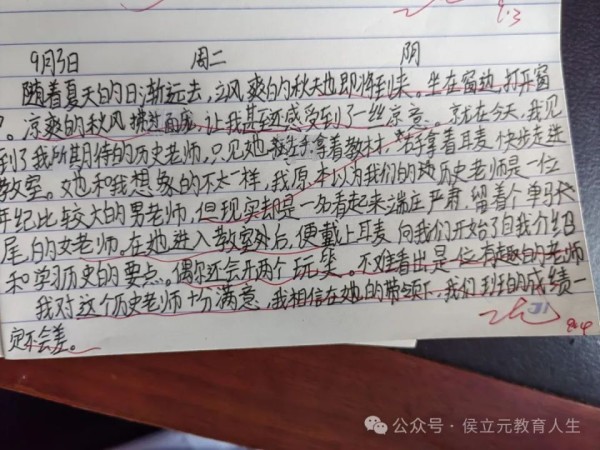 9.3
9月3日 周二 阴
随着夏天的日渐远去,立风爽的秋天也即将到来。坐在窗边,打开窗
户。凉爽的秋风拂过面庞,让我甚至还感受到了一丝凉意。就在今天,我见
到了我所期待的历史老师,只见她 左手拿着教材 右手拿着耳麦 快步走进
教室。她和我想象的不太一样,我原本以为我们的历史老师是一位
年纪比较大的男老师,但现实却是一名看起来端庄严肃,留着个单马尾长
尾,的女老师。在她进入教室外后,便戴上耳麦 向我们开始了自我介绍
和学习历史的要点。偶尔还会开两个玩笑。不难看出是一位有趣的老师
我对这个历史老师十分满意,我相信在她的带领下,我们班的成绩一
定不会差。
9.4
公众号·侯立元教育人生